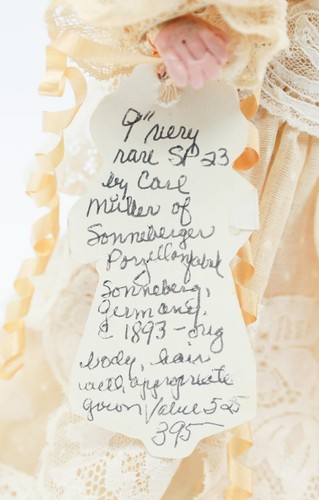 9" very
rare SP 23
by Carl
Müller of
Sonneberger
Porzellanfabrik
Sonneberg,
Germany,
c 1893 - orig
body, hair
well, appropriate
gown Value 525
395